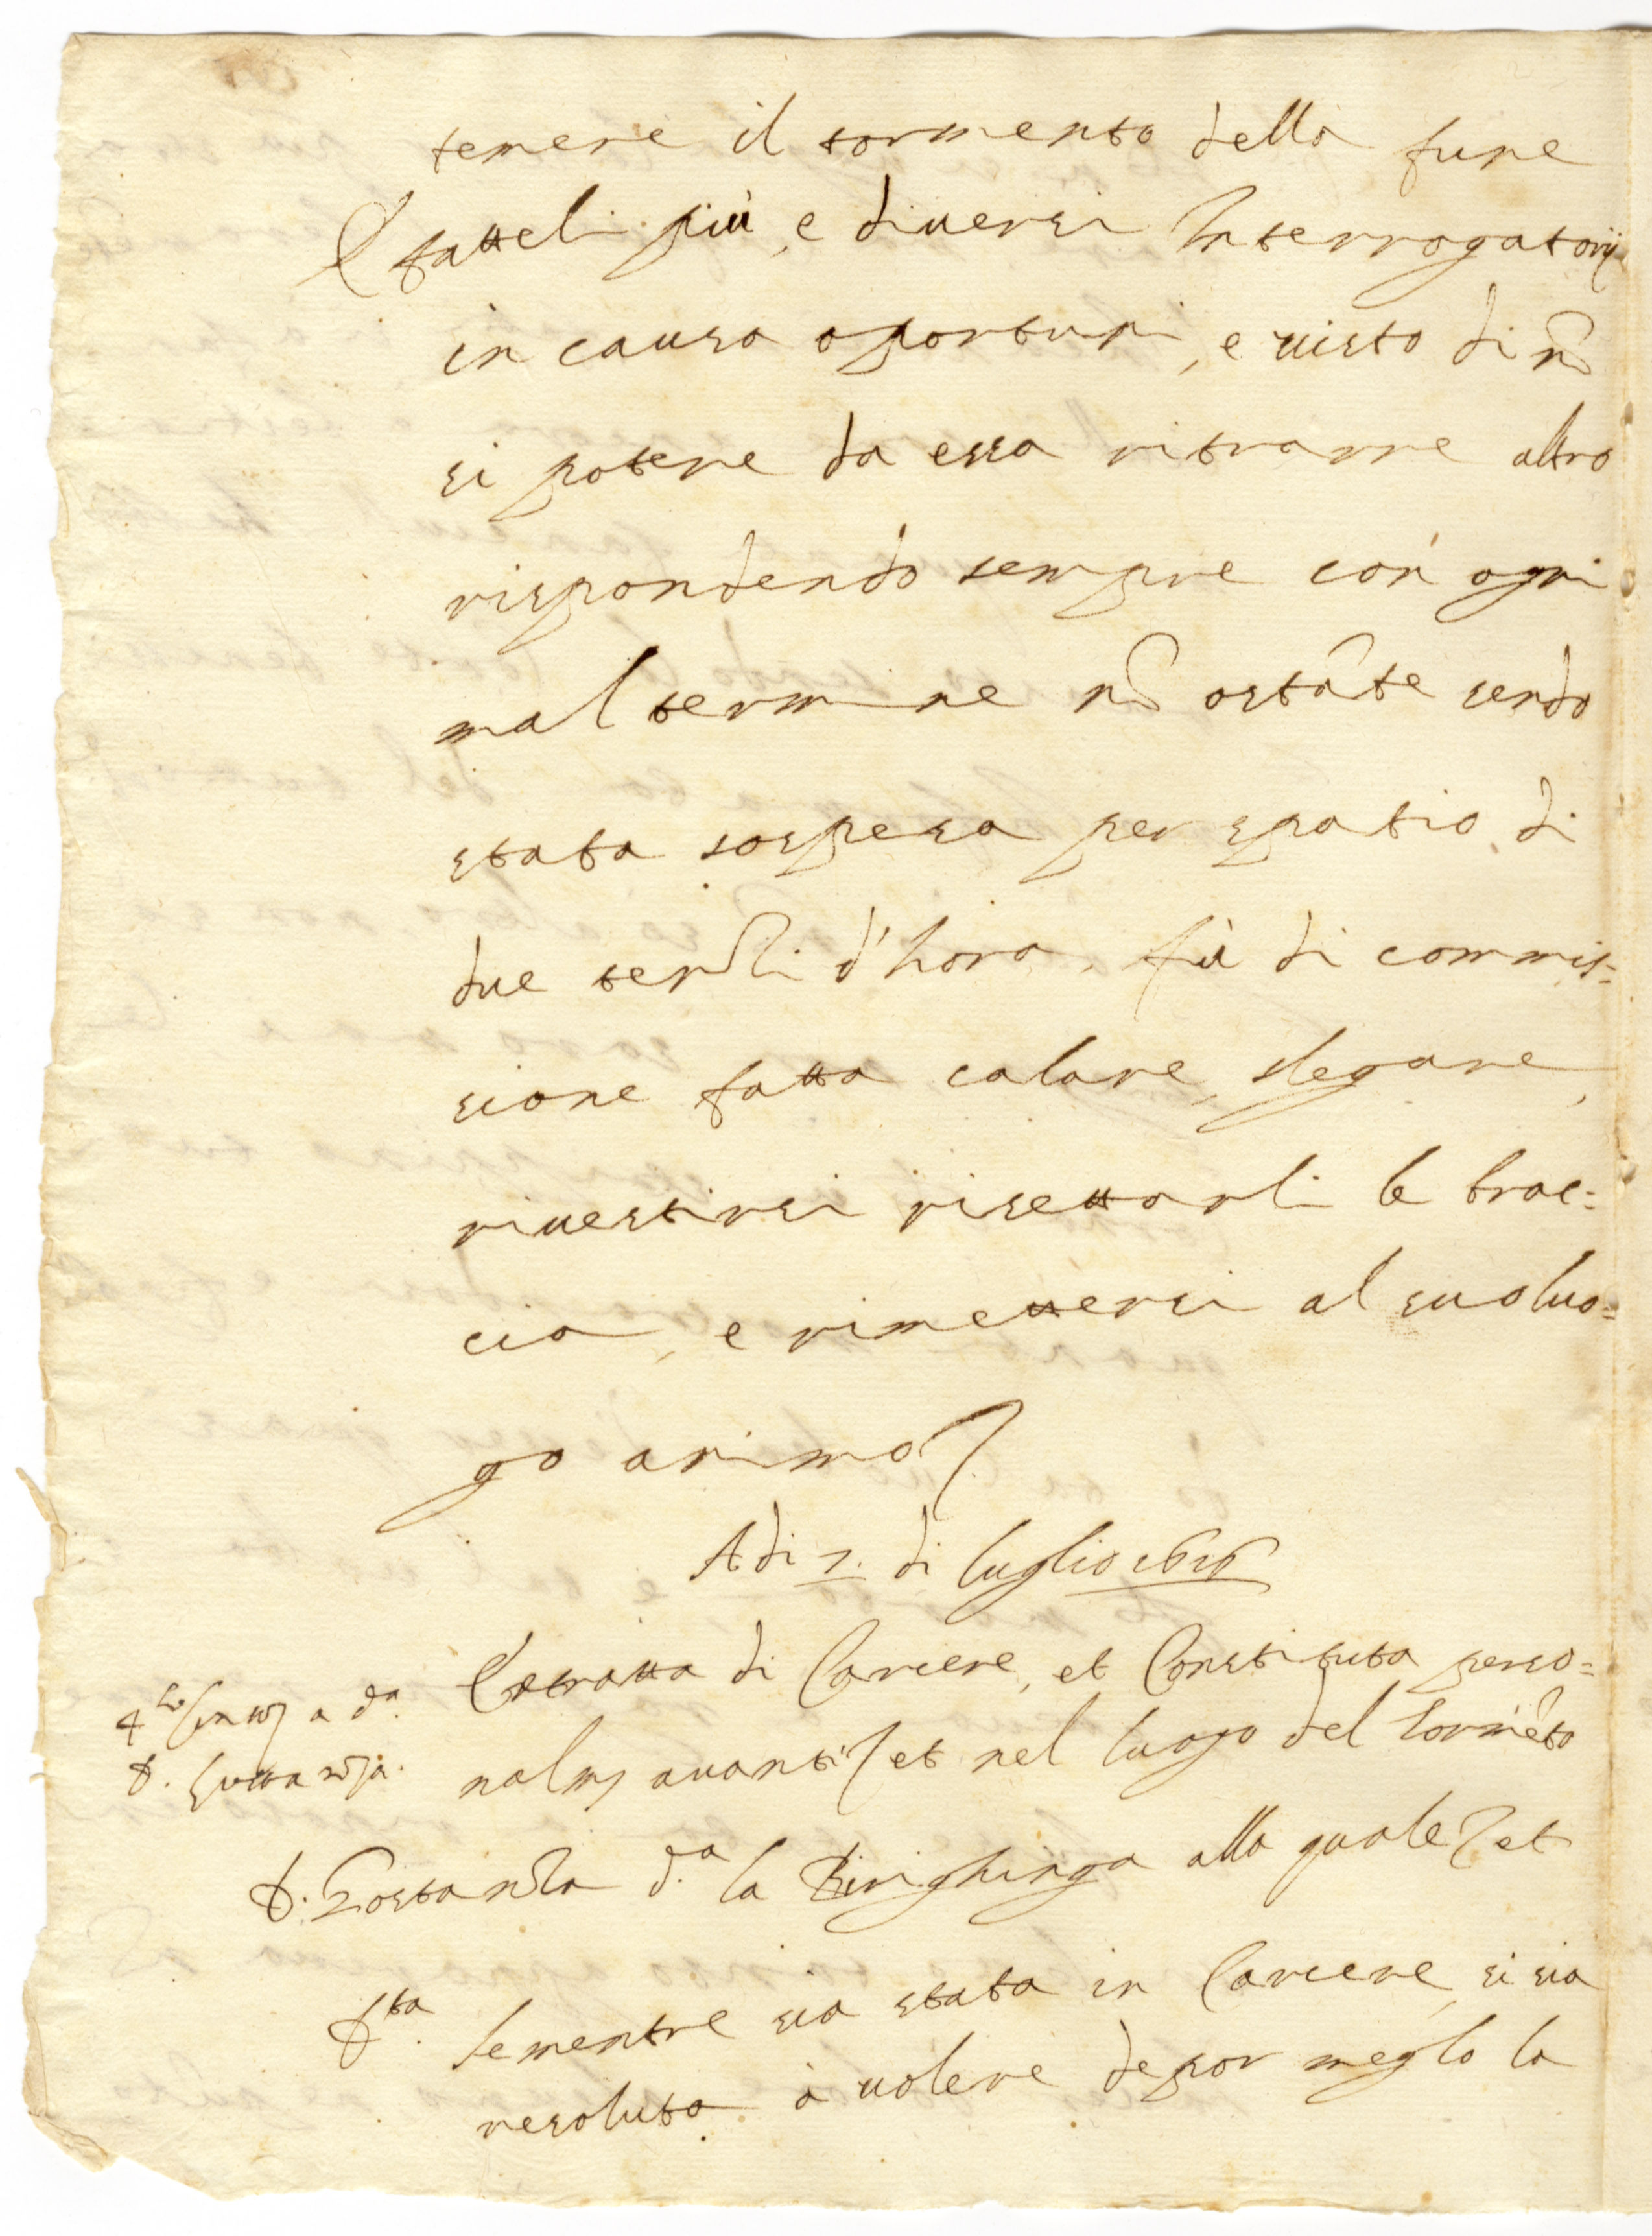 temere il tormento della fune
E fatteli più, e diversi Interrogatorij
in causa oportuni, e visto di nõ
si potere da essa ritrarre altro
rispondendo sempre con ogni
mal termine nõ ostãte sendo
stata sospesa per spatio di
due terzi d'hora, fù di commis=
sione fatta calare, slegare,
rivestirsi risettarli le brac=
cia, e rimettersi al suo luo=
go animo
Adi 7. di luglio 1616
Estratta di Carcere, et Constituta perso=
4 a dª
nalm avanti et nel luogo del tormẽto
D.
D. Gostanza d.ª la alla quale et
Dta. Se mentre sia stata in Carcere, si sia
resoluta à volere depor meglo la